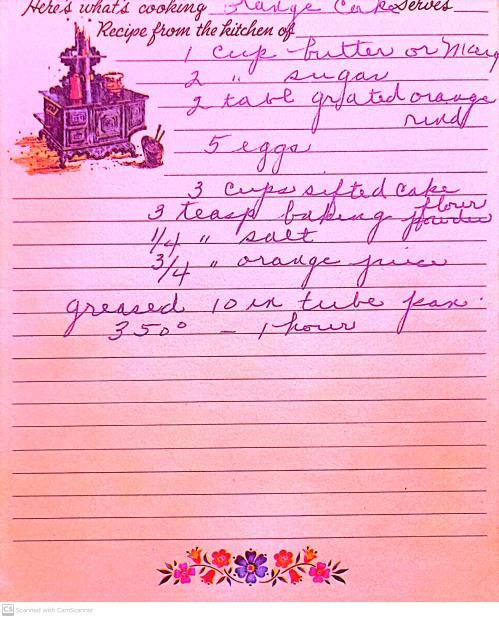 Here's what's cooking Orange Cake Serves
Recipe from the kitchen of
1 cup butter or Marg
2 " sugar
2 tabl grated orange
rind
5 eggs
3 cups sifted cake
flour
3 teasp baking powder
1/4 " salt
3/4 " orange juice
greased 10 in tube pan.
350° - 1 hour
CS Scanned with CamScanner